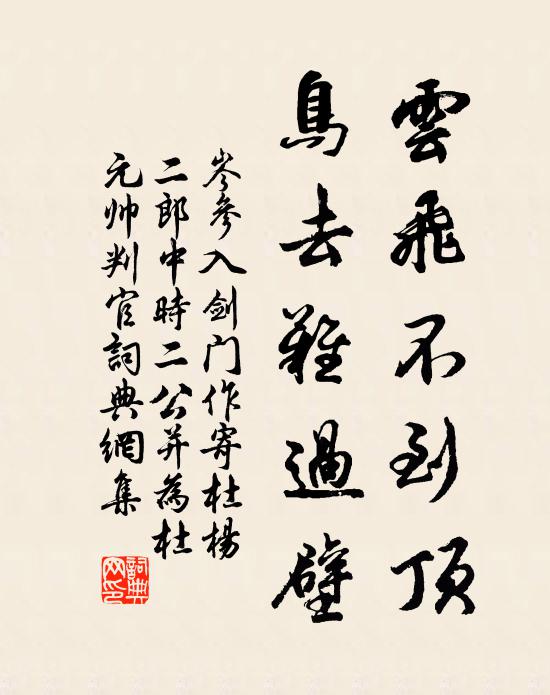 雲飛不到頂
鳥去難過壁
岑參入劍门作寄杜楊
二郎中時二公并為杜
元帅判官詞典網集
詞典网印